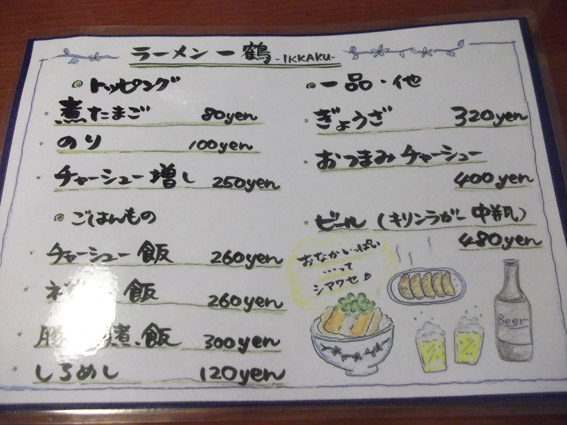 ラーメン一鶴 -IKKAKU-
◎トッピング
・煮たまご 80yen
・のり 100yen
・チャーシュー増し 250yen
◎ごはんもの
・チャーシュー飯 260yen
・飯 260yen
・煮飯 300yen
・しろめし 120yen
◎一品・他
・ぎょうざ 320yen
・おつまみチャーシュー
400yen
・ビール(キリンラガー中瓶)
480yen
おなかいっぱい
…って
シアワセ♪
Beer